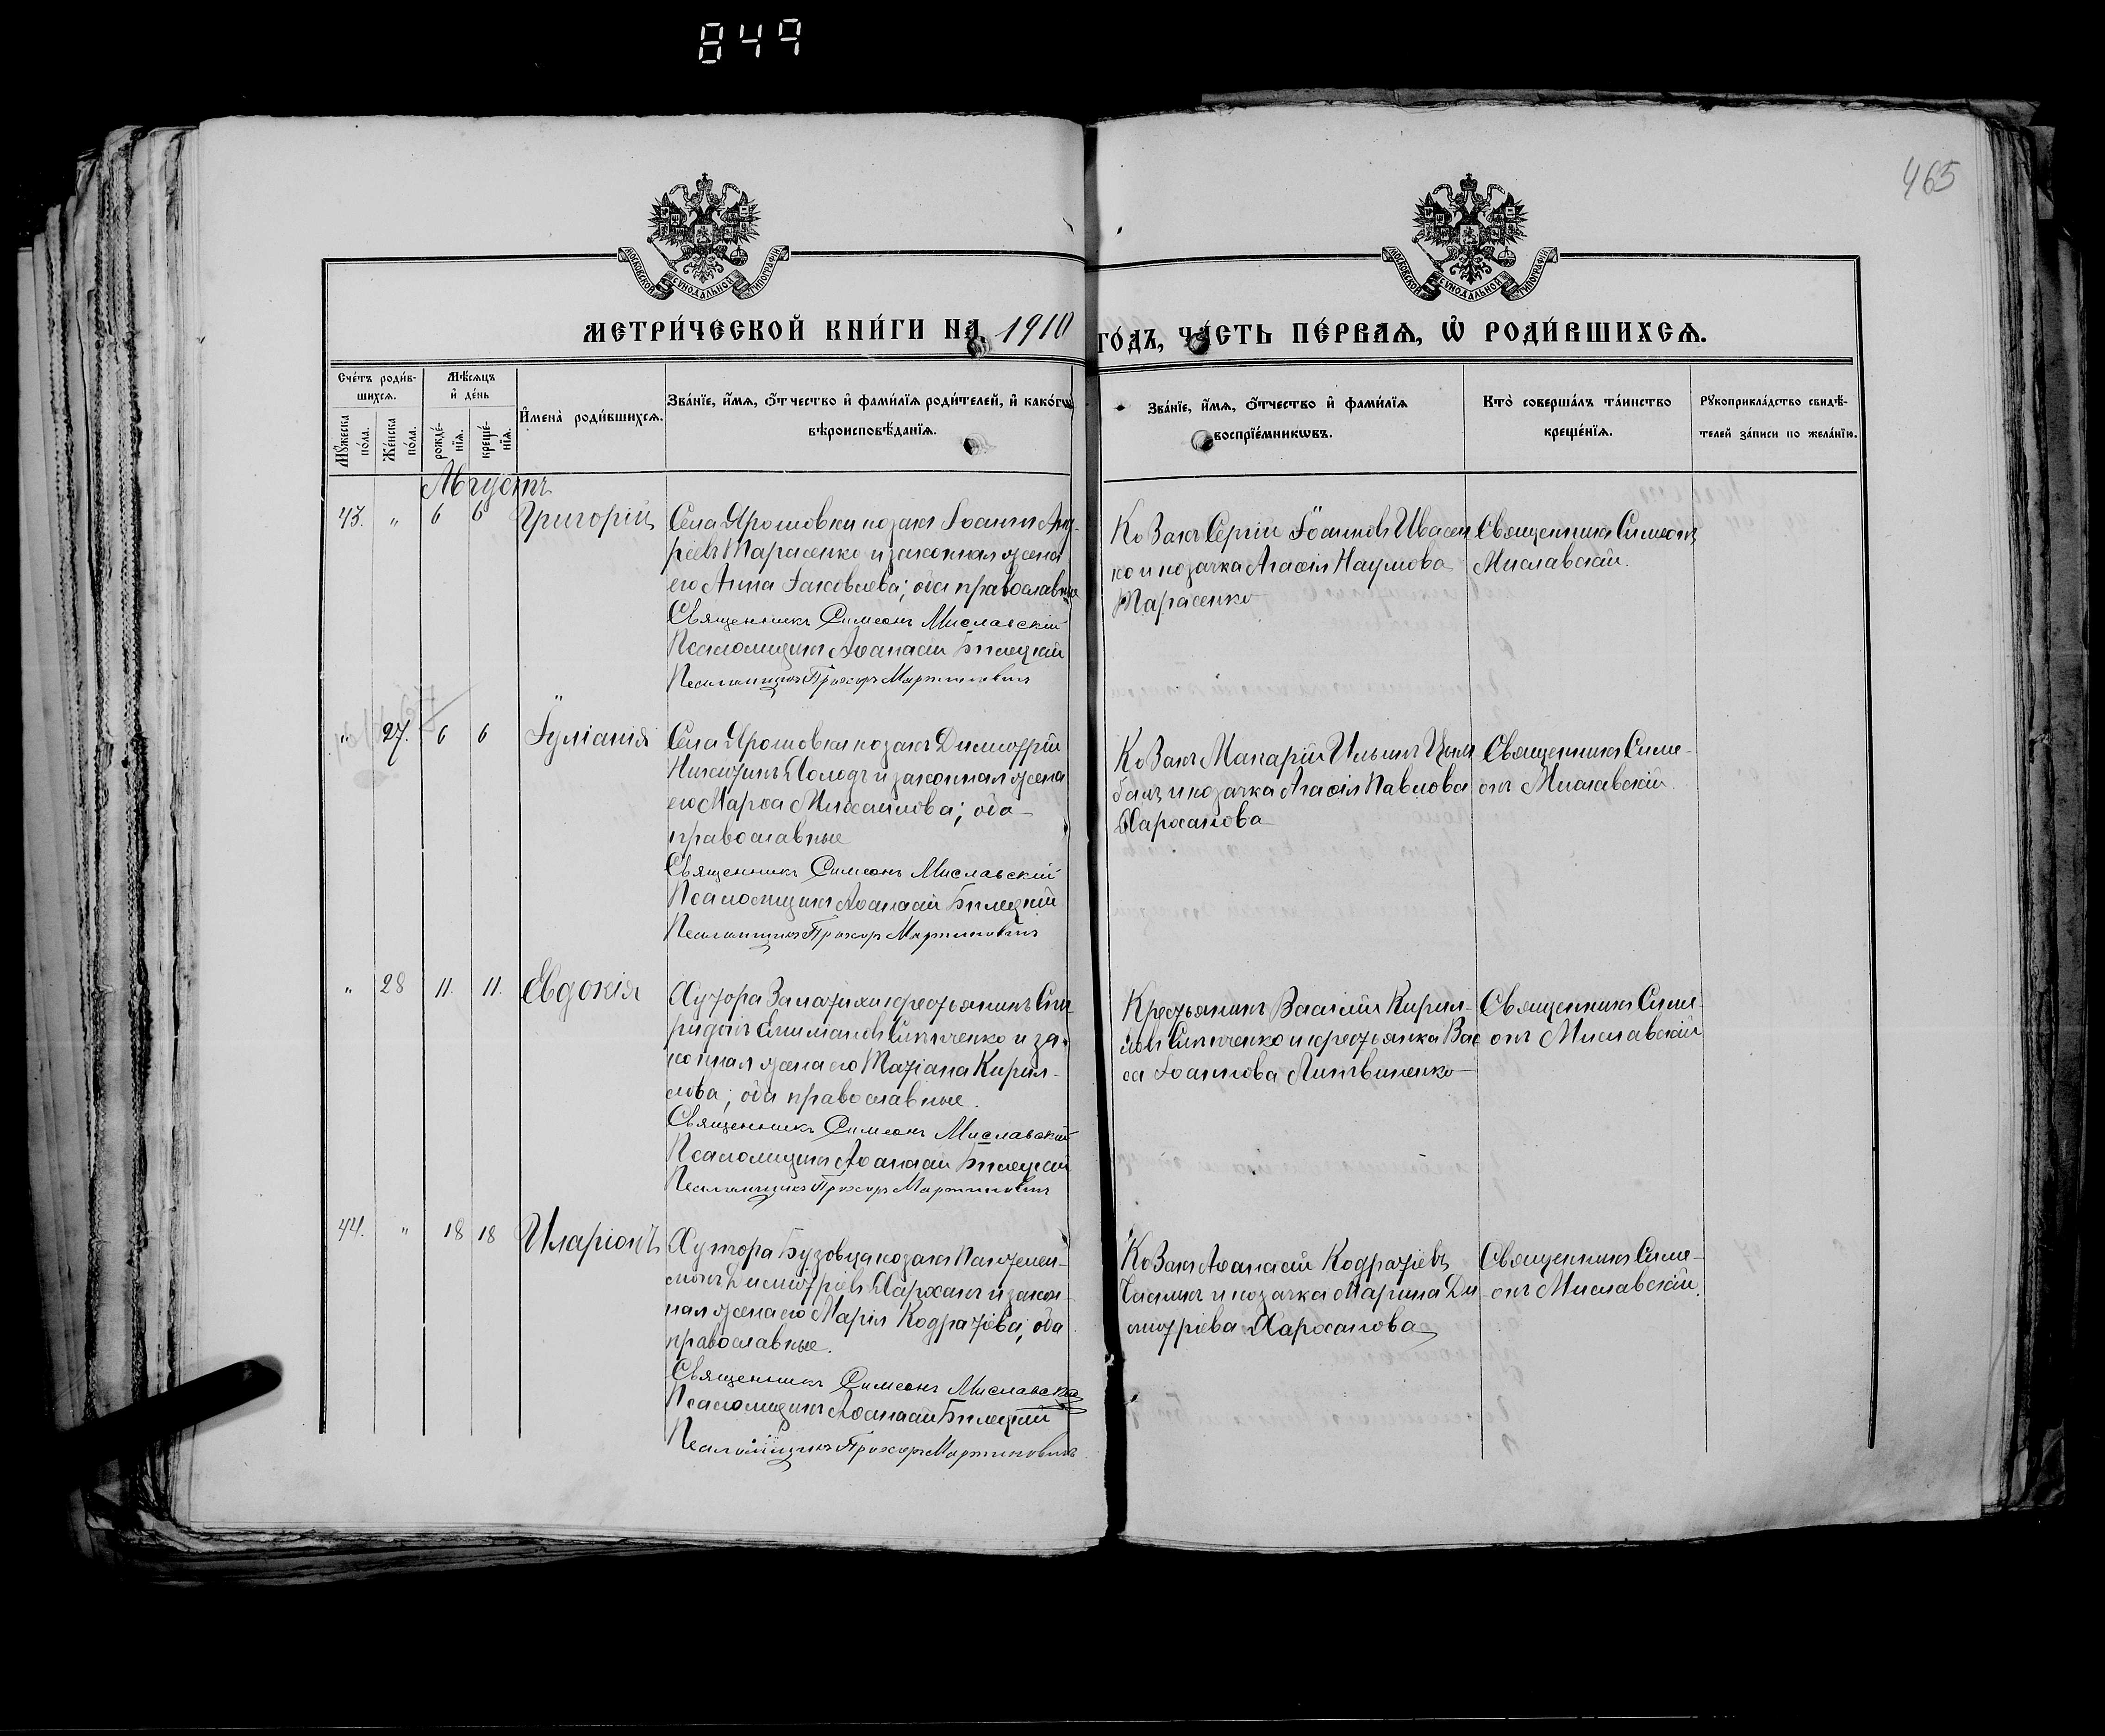 849
465
МОСКОВСКОЙ СѴНОДАЛЬНОЙ ТИПОГРАФІИ
МОСКОВСКОЙ СѴНОДАЛЬНОЙ ТИПОГРАФІИ
МЕТРИ́ЧЕСКОЙ КНИ́ГИ НА 1910
ГО́ДЪ, ЧА́СТЬ ПЕ́РВАѦ, Ѡ҆ РОДИ́ВШИХСѦ.
Сче́тъ роди́в-
шихсѧ.
Мꙋ́жеска по́ла.
Же́нска по́ла.
Мѣ́сѧцъ
и҆ де́нь
рожде́-нїѧ.
креще́-нїѧ.
И҆мена̀ роди́вшихсѧ.
Зва́нїе, и҆́мѧ, ѻ҆́тчество и҆ фами́лїѧ роди́телей, и҆ како́гѡ
вѣроисповѣ́данїѧ.
Зва́нїе, и҆́мѧ, ѻ҆́тчество и҆ фами́лїѧ
воспрїе́мникѡвъ.
Кто̀ соверша́лъ та́инство
креще́нїѧ.
Рꙋкоприкла́дство свидѣ́-
телей за́писи по жела́нїю.
Августъ
43. " 6 6 Григорій
Села Ярошовки козакъ Іоаннъ Анд-
ріевъ Тарасенко и законная жена
его Анна Іаковлева; оба православные
Священникъ Симеонъ Миславскій
Псаломщикъ Аѳанасій Билецкій
Псаломщикъ Прохоръ Мартиновичъ
Козакъ Сергій Іоанновъ Ивасен
ко и козачка Агаѳія Наумова
Тарасенко
Священникъ Симеонъ
Миславскій.
" 27. 6 6 Іуліанія
Села Ярошовки козакъ Димитрій
Никитинъ Холодъ и законная жена
его Марѳа Михаилова; оба
православные
Священникъ Симеонъ Миславскій
Псаломщикъ Аѳанасій Билецкій
Псаломщикъ Прохоръ Мартиновичъ
Козакъ Макарій Ильинъ Цым
балъ и козачка Агаѳія Павлова
Харханова
Священникъ Симе-
онъ Миславскій.
" 28 11. 11. Евдокія
Хутора Залатихи крестьянинъ Спи-
ридонъ Сипченко и за-
конная жена его Татіана Кирил-
лова; оба православные.
Священникъ Симеонъ Миславскій
Псаломщикъ Аѳанасій Билецкій
Псаломщикъ Прохоръ Мартиновичъ
Крестьянинъ Василій Кирил-
ловъ Сипченко и крестьянка Вас
са Іоаннова Литвиненко
Священникъ Симе-
онъ Миславскій
44. " 18 18 Иларіонъ
Хутора Бузовця козакъ Пантелеи-
монъ Димитріевъ Харханъ и закон
ная жена его Марія Кодратіева; оба
православные.
Священникъ Симеонъ Миславскій
Псаломщикъ Аѳанасій Билецкій
Псаломщикъ Прохоръ Мартиновичъ
Козакъ Аѳанасій Кодратіевъ
и козачка Марина Ди
митріева Харханова
Священникъ Симе-
онъ Миславскій.